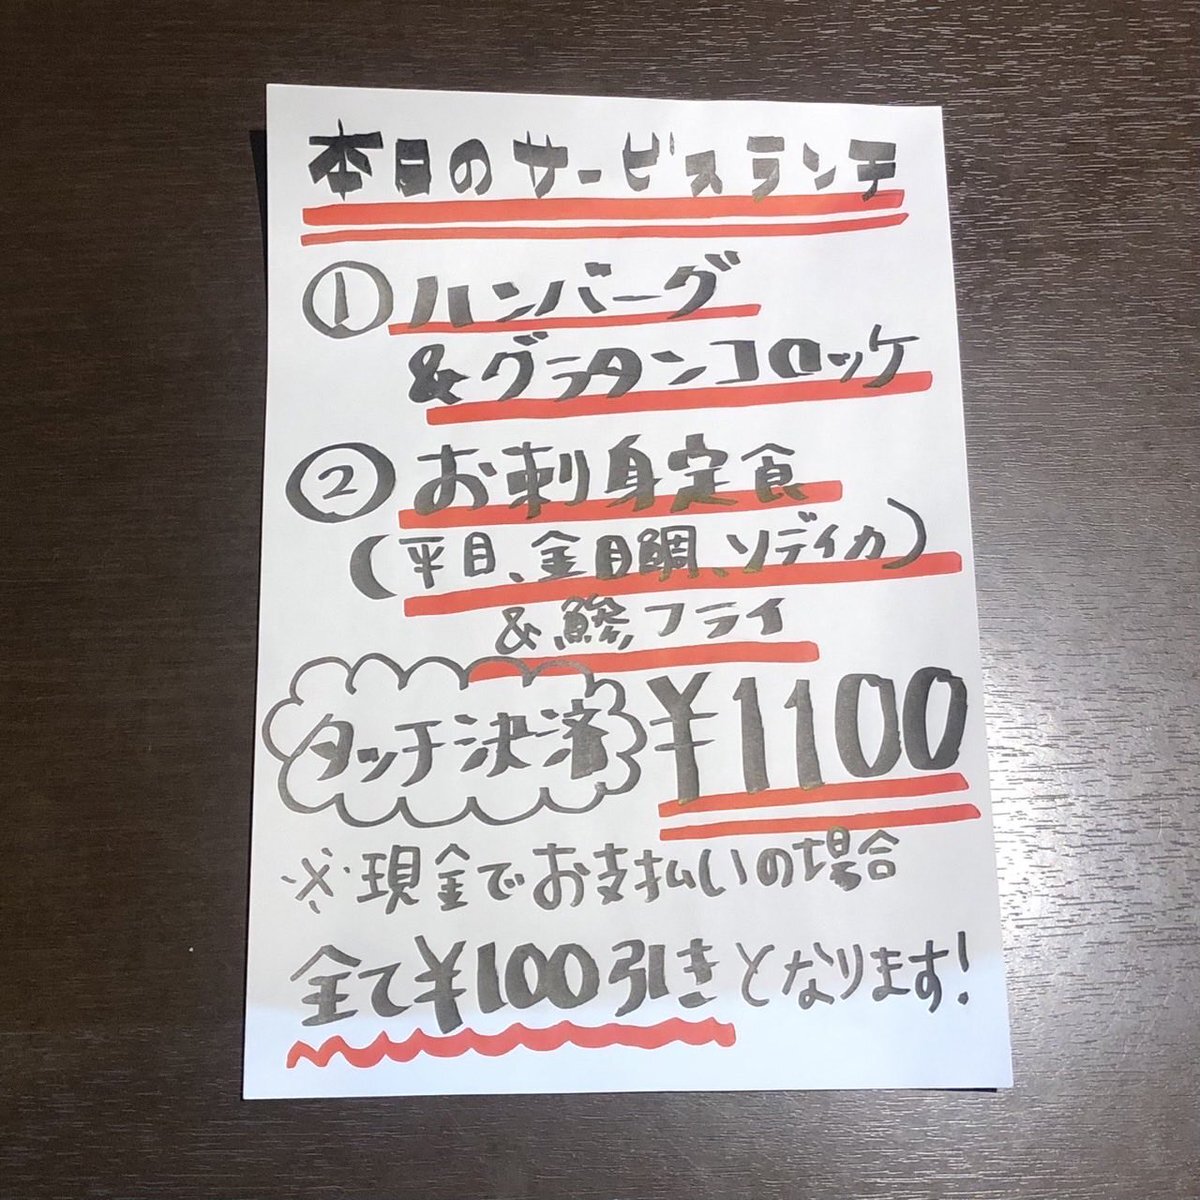 本日のサービスランチ
①ハンバーグ
&グラタンコロッケ
②お刺身定食
(平目、金目鯛、ソデイカ)
&鯵フライ
タッチ決済 ¥1100
※現金でお支払いの場合
全て¥100引きとなります!